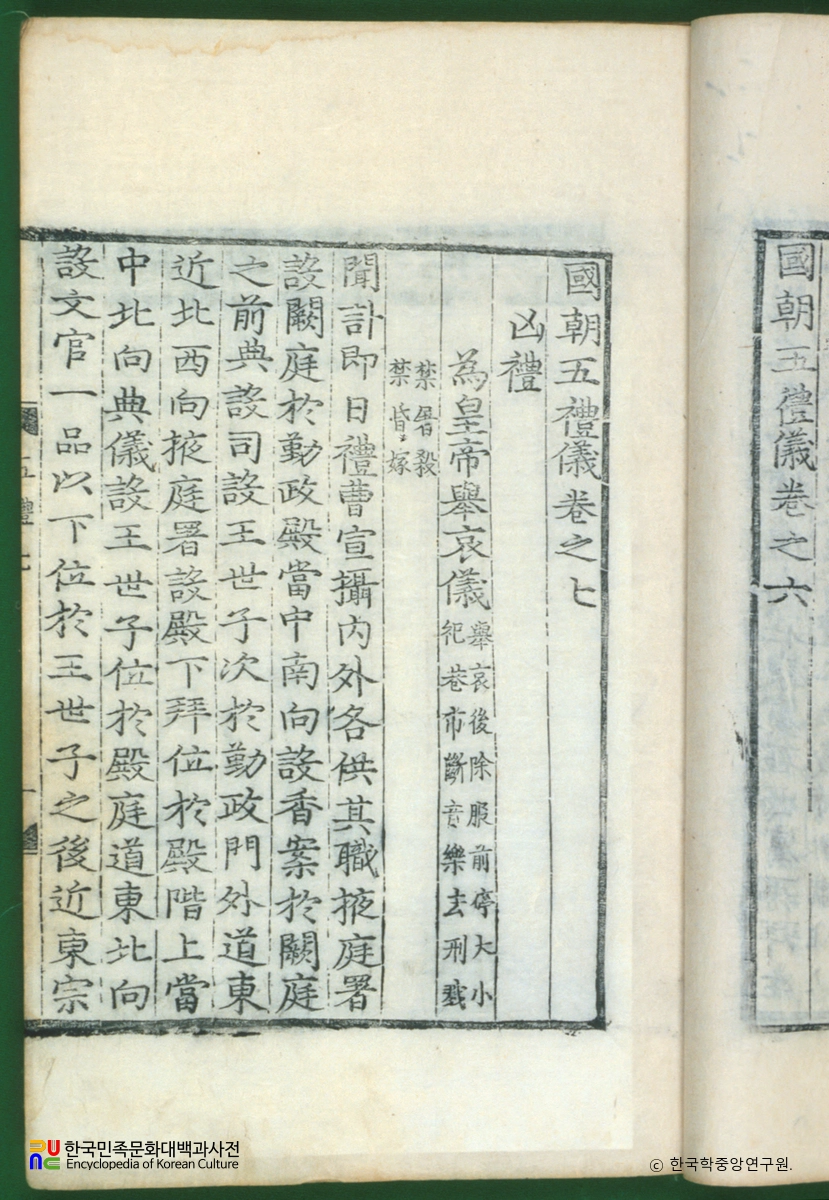 國朝五禮儀卷之六
國朝五禮儀卷之七
凶禮
為皇帝舉哀儀
舉哀後除服前停大小
祀巷市斷音樂去刑戮
禁屠殺
禁昏嫁
聞訃即日禮曹宣攝内外各供其職掖庭署
設闕庭於勤政殿當中南向設香案於闕庭
之前典設司設王世子次於勤政門外道東
近北西向掖庭署設殿下拜位於殿階上當
中北向典儀設王世子位於殿庭道東北向
設文官一品以下位於王世子之後近東宗
한국민족문화대백과사전
Encyclopedia of Korean Culture
© 한국학중앙연구원.